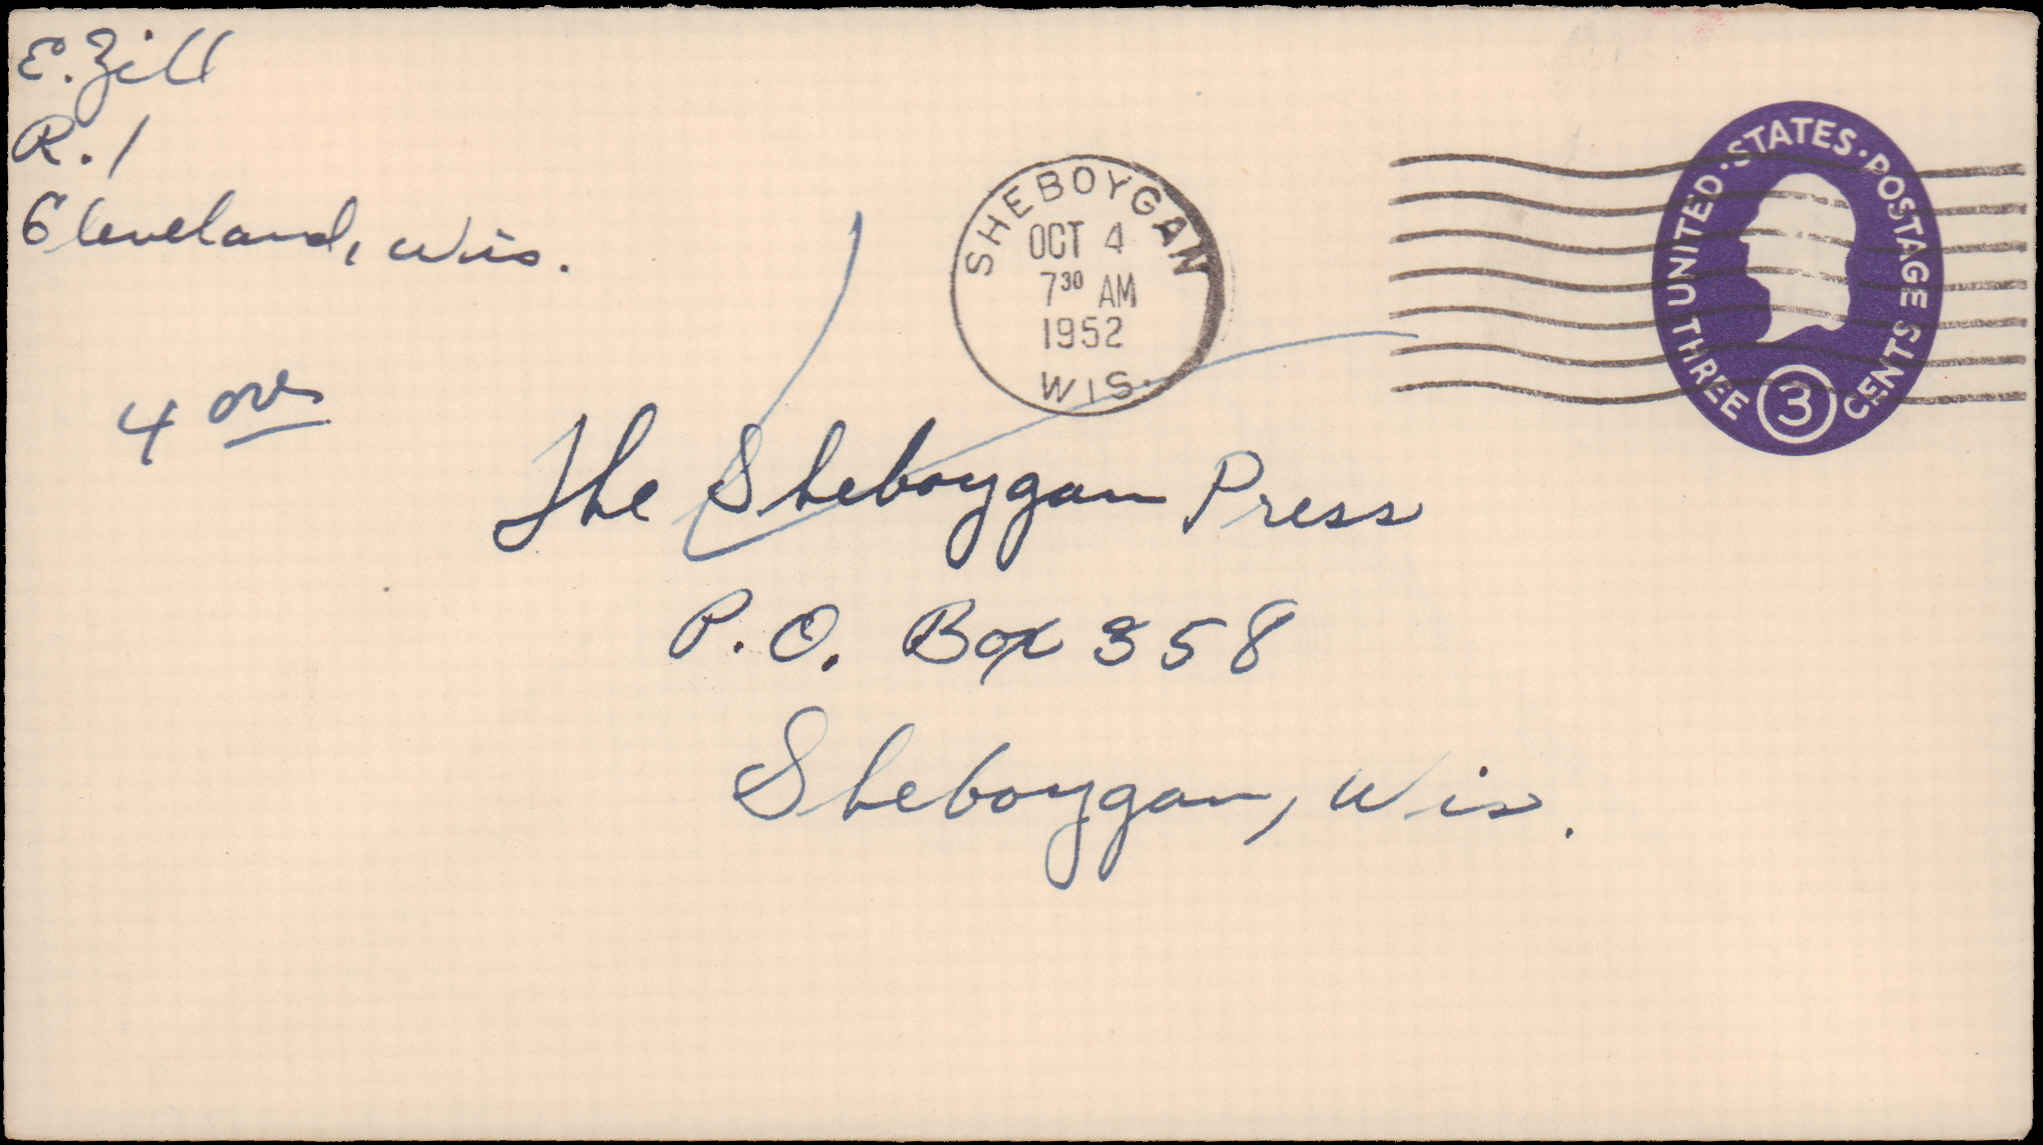 E. Zill
R. 1
Cleveland, Wis.
SHEBOYGAN
OCT 4
7³⁰ AM
1952
WIS.
UNITED · STATES · POSTAGE
THREE 3 CENTS
4
The Sheboygan Press
P. O. Box 358
Sheboygan, Wis.